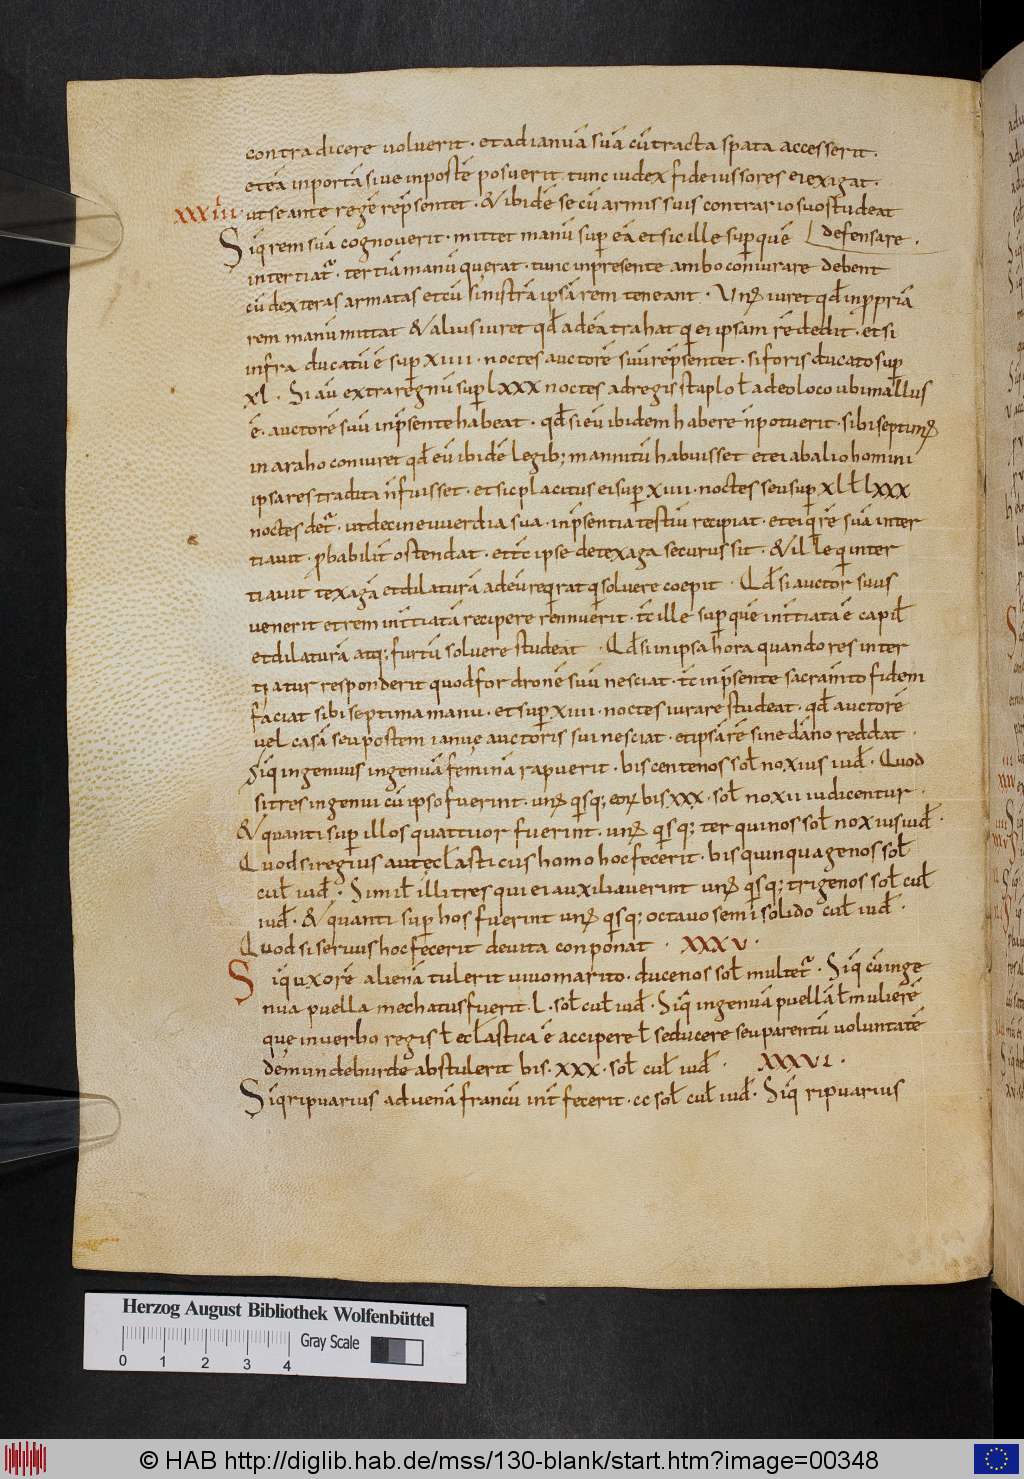 contradicere voluerit · et ad ianuā suā cū tracta spata accesserit ·
et eā in portā sive in postē posuerit tunc iudex fideiussores ei exigat ·
XXXIIII ut se ante regē rep̄sentet · & ibidē se cū armis suis contrario suo studeat
Siq̄ rem suā cognoverit · mittet manū sup̄ eā et sic ille sup̄ quē defensare ·
intertiat̄ · tertiā manū querat · tunc in presente ambo coniurare debent
cū dexteras armatas et cū sinistrā ipsā rem teneant · Unꝰ iuret qđ in p̄priā
rem manū mittat & alius iuret qđ ad eā trahat q̄ ei ipsam rē dedit · et si
infra ducatū ē sup̄ XIIII · noctes auctorē suū rep̄sentet · si foris ducato sup̄
XL · Si aū extra regnū sup̄ LXXX noctes ad regis staplo ł ad eo loco ubi mallus
ē · auctorē suū in p̄sente habeat · qđ si eū ibidem habere n̄ potuerit · sibi septimꝰ
in araho coniuret qđ eū ibidē legib; mannitū habuisset et ei ab alio homini
ipsa res tradita n̄ fuisset · et sic placitus ei sup̄ XIIII · noctes seu sup̄ XL ł LXXX
noctes det̄ · ut decineuuerdia sua · in p̄sentia testiū recipiat · et ei q̄ rē suā inter
tiavit · p̄babilit̄ ostendat · et tc̄ ipse de texaga securus sit · & ille q̄ inter
tiavit texagā et dilaturā ad eū req̄rat q̄ solvere coepit · Qđ si auctor suus
venerit et rem int̄tiatā recipere rennuerit · tc̄ ille sup̄ quē int̄tiata ē capił
et dilaturā atq; furtū solvere studeat · Qđ si in ipsa hora quando res inter
tiatur responderit quod fordronē suū nesciat · tc̄ in p̄sente sacram̄to fidem
faciat sibi septima manu · et sup̄ XIIII · noctes iurare studeat · qđ auctorē
vel casā seu postem ianue auctoris sui nesciat · et ipsā rē sine dāno reddat ·
Siq̄ ingenuus ingenuā feminā rapuerit · bis centenos soł noxius iuđ · Quod
si tres ingenui cū ipso fuerint · unꝰ q̄sq; eoꝝ bis XXX · soł noxii iudicentur ·
& quanti sup̄ illos quattuor fuerint · unꝰ q̄sq; ter quinos soł noxius iuđ ·
Quod si regius aut ecł̄asticus homo hoc fecerit · bis quinquagenos soł
cuł iuđ · Simił illi tres qui ei auxiliaverint unꝰ q̄sq; trigenos soł cuł
iuđ · & quanti sup̄ hos fuerint unꝰ q̄sq; octavo semi solido cuł iuđ ·
Quod si servus hoc fecerit de vita conponat · XXXV ·
Siq̄ uxorē alienā tulerit vivo marito · ducenos soł multet̄ · Siq̄ cū inge
nua puella mechatus fuerit · L · soł cuł iuđ · Siq̄ ingenuā puellā ł mulierē
que in verbo regis ł ecł̄astica ē accipere ł seducere seu parentū voluntatē
dēmundeburde abstulerit bis · XXX · soł cuł iuđ · XXXVI ·
Siq̄ ripuarius advenā francū int̄fecerit · cc soł cuł iuđ · Siq̄ ripuarius
Herzog August Bibliothek Wolfenbüttel
Gray Scale
0 1 2 3 4
© HAB http://diglib.hab.de/mss/130-blank/start.htm?image=00348